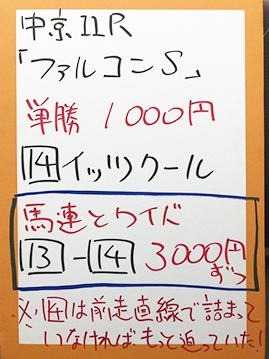 中京11R
「ファルコンS」
単勝 1000円
14イッツクール
馬連とワイド
13-14 3000円
ずつ
※14は前走直線で詰まって
いなければもっと迫っていた!